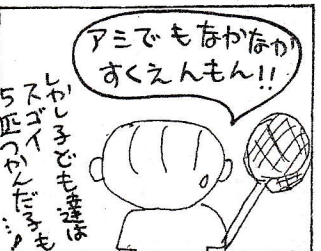 アミでもなかなか
すくえんもん!!
しかし子ども達は
スゴイ
5匹つかんだ子も
…!